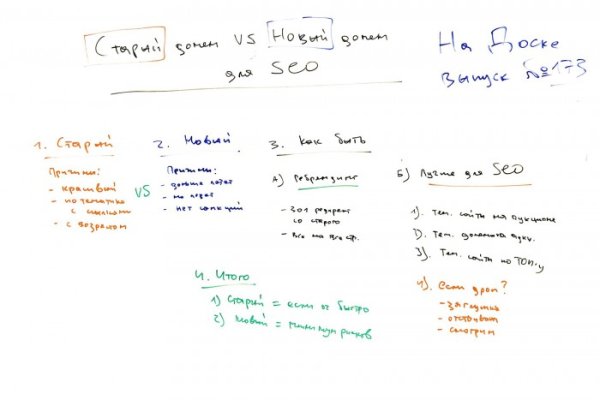 Старый домен VS Новый домен
для SEO
На Доске
выпуск №173
1. Старый
Причины:
- красивый
- по тематике
с ссылками
- с возрастом
VS
2. Новый
Причины:
- дольше
- нет санкций
3. Как быть
А) Ребрендинг
- 301 редирект
со старого
- Все на все стр.
Б) Лучше для SEO
1). Тем. сайты на аукционе
2). Тем. домена аукц.
3). Тем. сайты по ТОП-у
4). Если дроп?
- заглушка
- отстояться
- смотрим
4. Итого
1) Старый = если оч быстро
2) Новый = минимум рисков